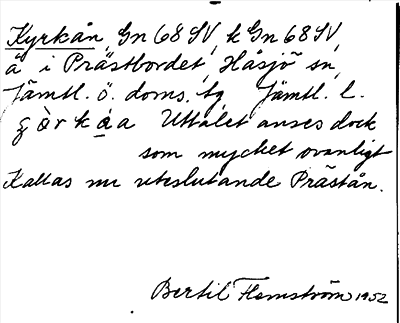 Kyrkån, Gn 68 SV, k Gn 68 SV,
å i Prästbordet, Håsjö sn,
Jämtl. ö. doms. tg, Jämtl. l.
çə̀rkå̀a Uttalet anses dock
som mycket ovanligt
Kallas nu uteslutande Prästån.
Bertil Flemström 1952